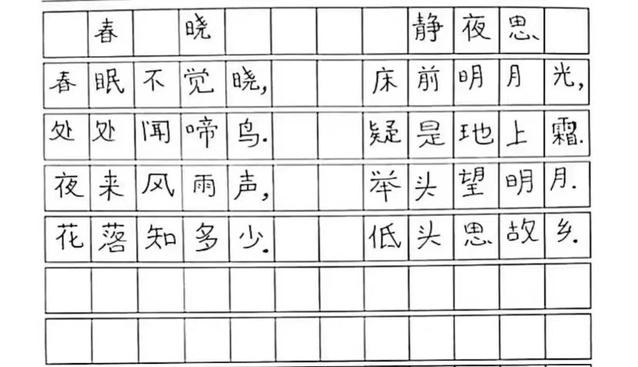 春晓
春眠不觉晓,
处处闻啼鸟.
夜来风雨声,
花落知多少.
静夜思
床前明月光,
疑是地上霜.
举头望明月.
低头思故乡.